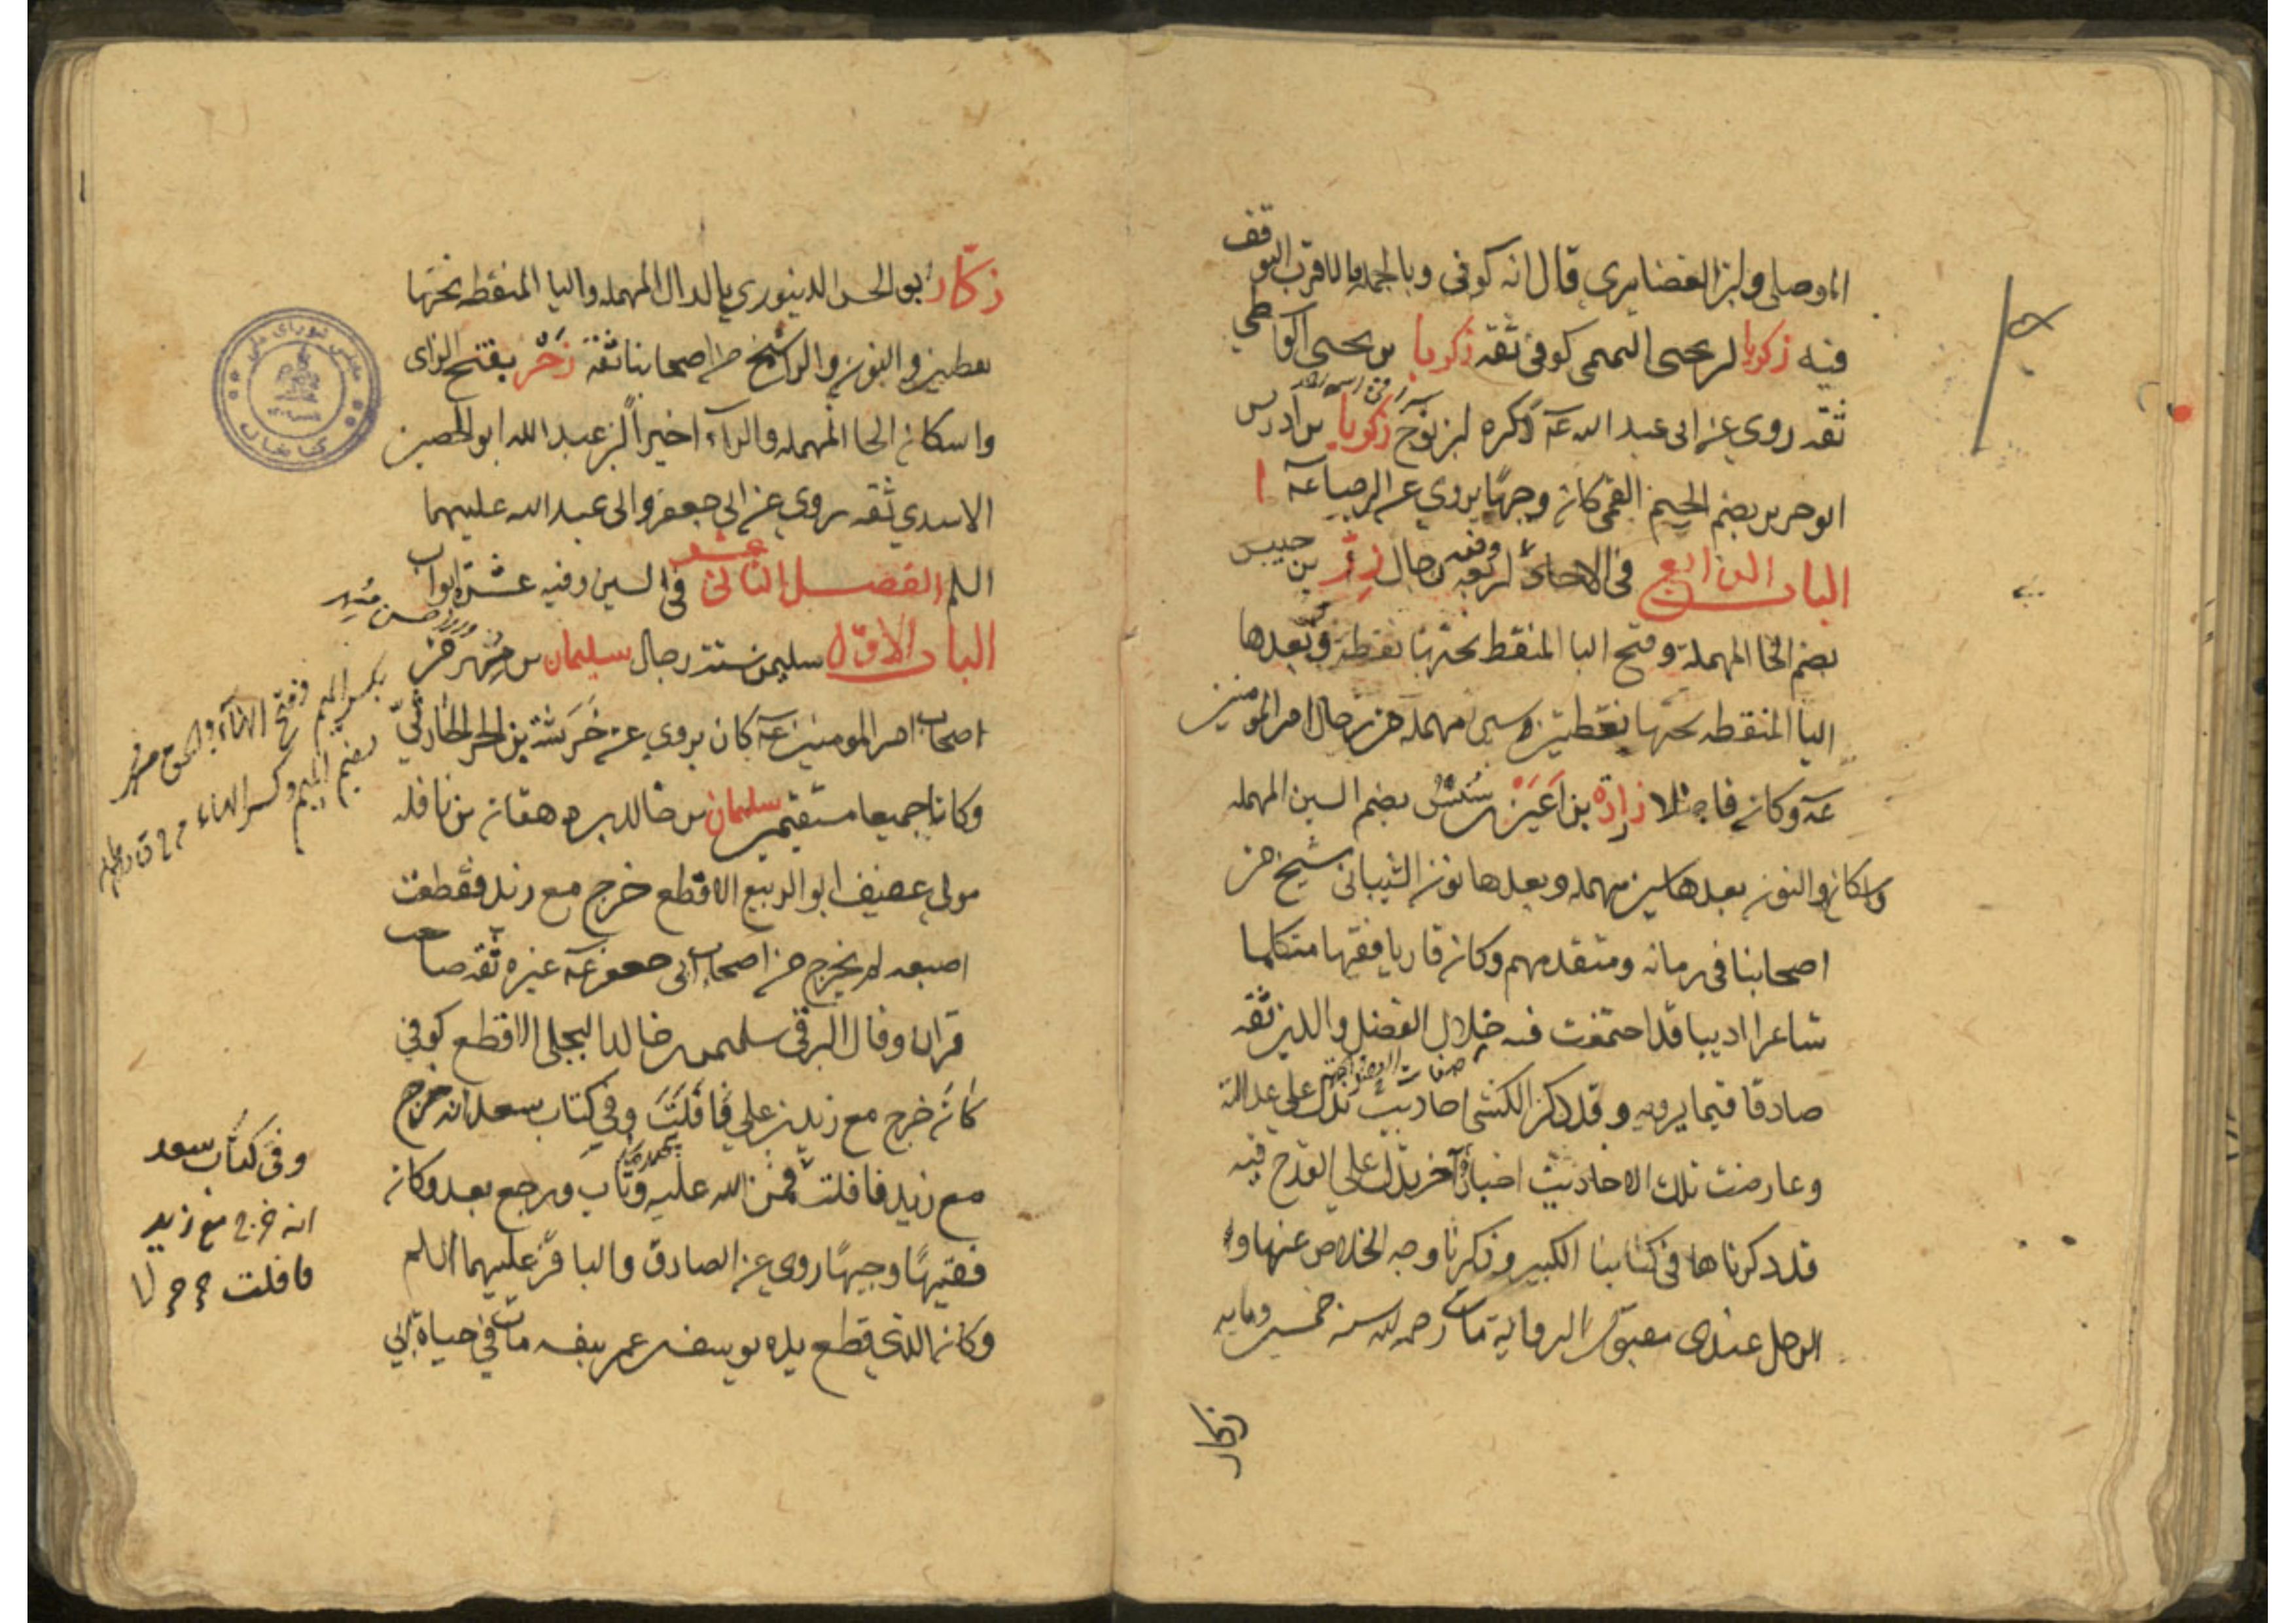 الموصلي وابن الغضايري قال انه كوفي وبالجملة فالاقرب التوقف
فيه زكريا بن يحيى التميمي كوفي ثقه زكريا بن يحيى الواسطي
ثقه روى عن ابي عبد الله عه ذكره ابن نوح زكريا بن ادريس
ابو جرير بضم الجيم القمي كان وجها يروي عن الرضا عه
الباب الرابع في الاحاد اربعه رجال زر بن حبيس
بضم الحا المهملة وفتح البا المنقط تحتها نقطة وبعدها
اليا المنقطه تحتها نقطتين وسين مهمله من رجال امير المومنين
عه وكان فاضلا زرارة بن اعين بن سنسن بضم السين المهمله
واسكان النون بعدها سين مهمله وبعدها نون الشيباني شيخ من
اصحابنا في زمانه ومتقدمهم وكان قاريا فقيها متكلما
شاعرا اديبا قد اجتمعت فيه خلال الفضل والدين ثقه
صادقا فيما يرويه وقد ذكر الكشي احاديث تدل على عدالته
وعارضت تلك الاحاديث اخبار اخر تدل على القدح فيه
قد ذكرناها في كتابنا الكبير وذكرنا وجه الخلاص عنها و
الرجل عندى مقبول الرواية مات رحمه الله سنه خمسين ومايه
زكار
زكار ابو الحسن الدينوري بالدال المهمله واليا المنقطه تحتها
نقطتين والنون والرا شيخ من اصحابنا ثقة زحر بفتح الزاى
واسكان الحا المهمله والرآء اخيراً بن عبد الله ابو الحصين
الاسدي ثقه روي عن ابي جعفر وابي عبد الله عليهما
السلم الفصل الثاني عشر في السين وفيه عشرة ابواب
الباب الاوّل سليمن ستة رجال سليمان بن مسهر من
اصحاب امير المومنين عه كان يروي عن خَرَشَة بن الحر الحارثيّ
وكانا جميعا مستقيمين سليمان بن خالد بن دهقان بن نافله
مولى عفيف ابو الربيع الاقطع خرج مع زيد فقطعت
اصبعه لم يخرج من اصحاب ابي جعفر عه غيره ثقه صاحب
قران وقال البرقي سليمن بن خالد البجلي الاقطع كوفي
كان خرج مع زيد بن علي فافلت وفي كتاب سعد انه خرج
مع زيد فافلت فمن الله عليه وتاب ورجع بعد وكان
فقيهًا وجيهًا روى عن الصادق والباقر عليهما السلم
وكان الذي قطع يده يوسف بن عمر بنفسه مات في حياة ابي
بكسر الميم وفتح الهاء
بضم الميم وكسر الهاء
وفي كتاب سعد
انه خرج مع زيد
فافلت